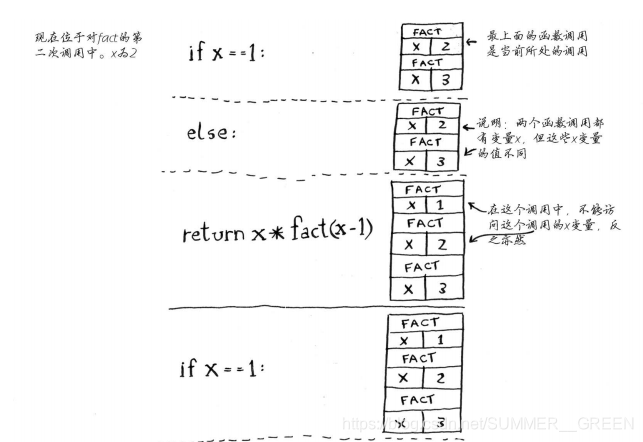 现在位于对fact的第
二次调用中。x为2
if x==1:
FACT
X 2
FACT
X 3
最上面的函数调用
是当前所处的调用
else:
FACT
X 2
FACT
X 3
说明：两个函数调用都
有变量x，但这些x变量
的值不同
return x * fact(x-1)
FACT
X 1
FACT
X 2
FACT
X 3
在这个调用中，不能访
问这个调用的x变量，反
之亦然
if x==1:
FACT
X 1
FACT
X 2
FACT
X 3
https://blog.csdn.net/SUMMER__GREEN